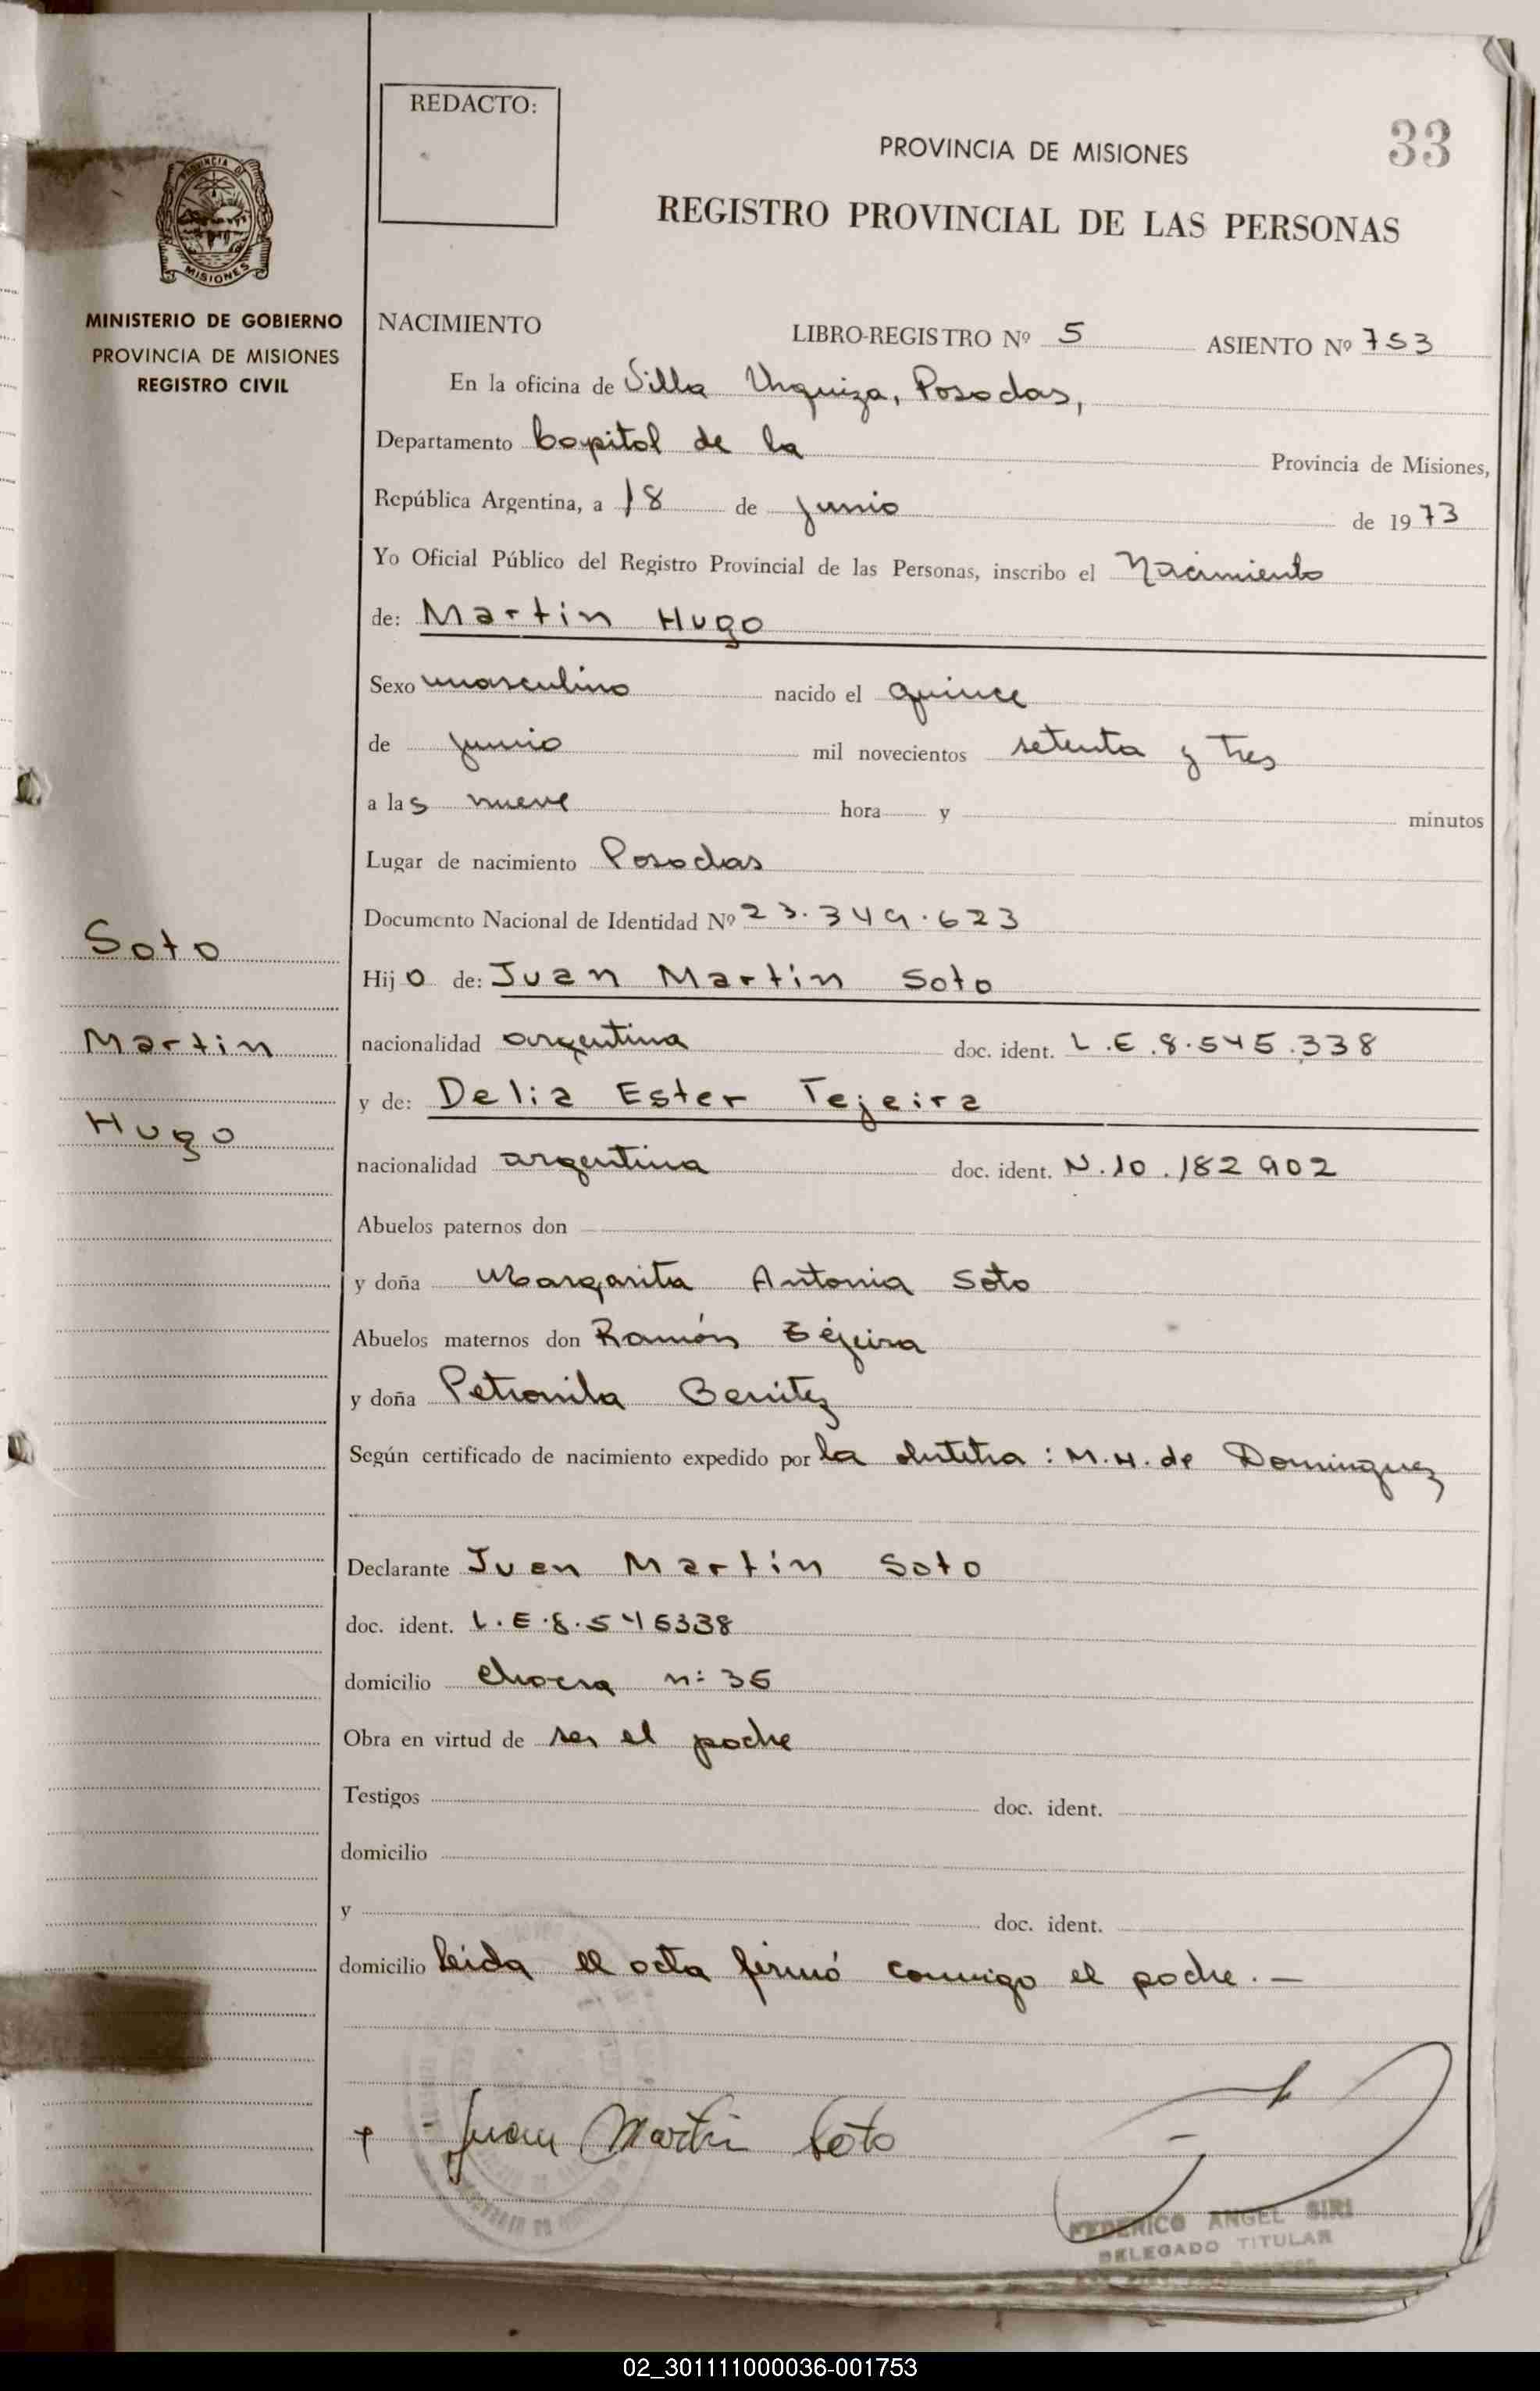 REDACTO:
33
PROVINCIA DE MISIONES
REGISTRO PROVINCIAL DE LAS PERSONAS
PROVINCIA DE
MISIONES
MINISTERIO DE GOBIERNO
PROVINCIA DE MISIONES
REGISTRO CIVIL
NACIMIENTO LIBRO-REGISTRO Nº 5 ASIENTO Nº 753
En la oficina de Villa Urquiza, Posadas,
Departamento Capital de la Provincia de Misiones,
República Argentina, a 18 de junio de 1973
Yo Oficial Público del Registro Provincial de las Personas, inscribo el Nacimiento
de: Martin Hugo
Sexo masculino nacido el quince
de junio mil novecientos setenta y tres
a las nueve hora y minutos
Lugar de nacimiento Posadas
Documento Nacional de Identidad Nº 23.349.623
Soto
Martin
Hugo
Hijo de: Juan Martin Soto
nacionalidad argentina doc. ident. L.E.8.545.338
y de: Delia Ester Tejeira
nacionalidad argentina doc. ident. N.10.182902
Abuelos paternos don
y doña Margarita Antonia Soto
Abuelos maternos don Ramón Tejeira
y doña Petronila Benitez
Según certificado de nacimiento expedido por la obstetra: M.H. de Dominguez
Declarante Juan Martin Soto
doc. ident. L.E.8.545338
domicilio chacra n: 36
Obra en virtud de ser el padre
Testigos doc. ident.
domicilio
y doc. ident.
domicilio leida el acta firmó conmigo el padre.—
Juan Martin Soto
FEDERICO ANGEL SIRI
DELEGADO TITULAR
02_301111000036-001753